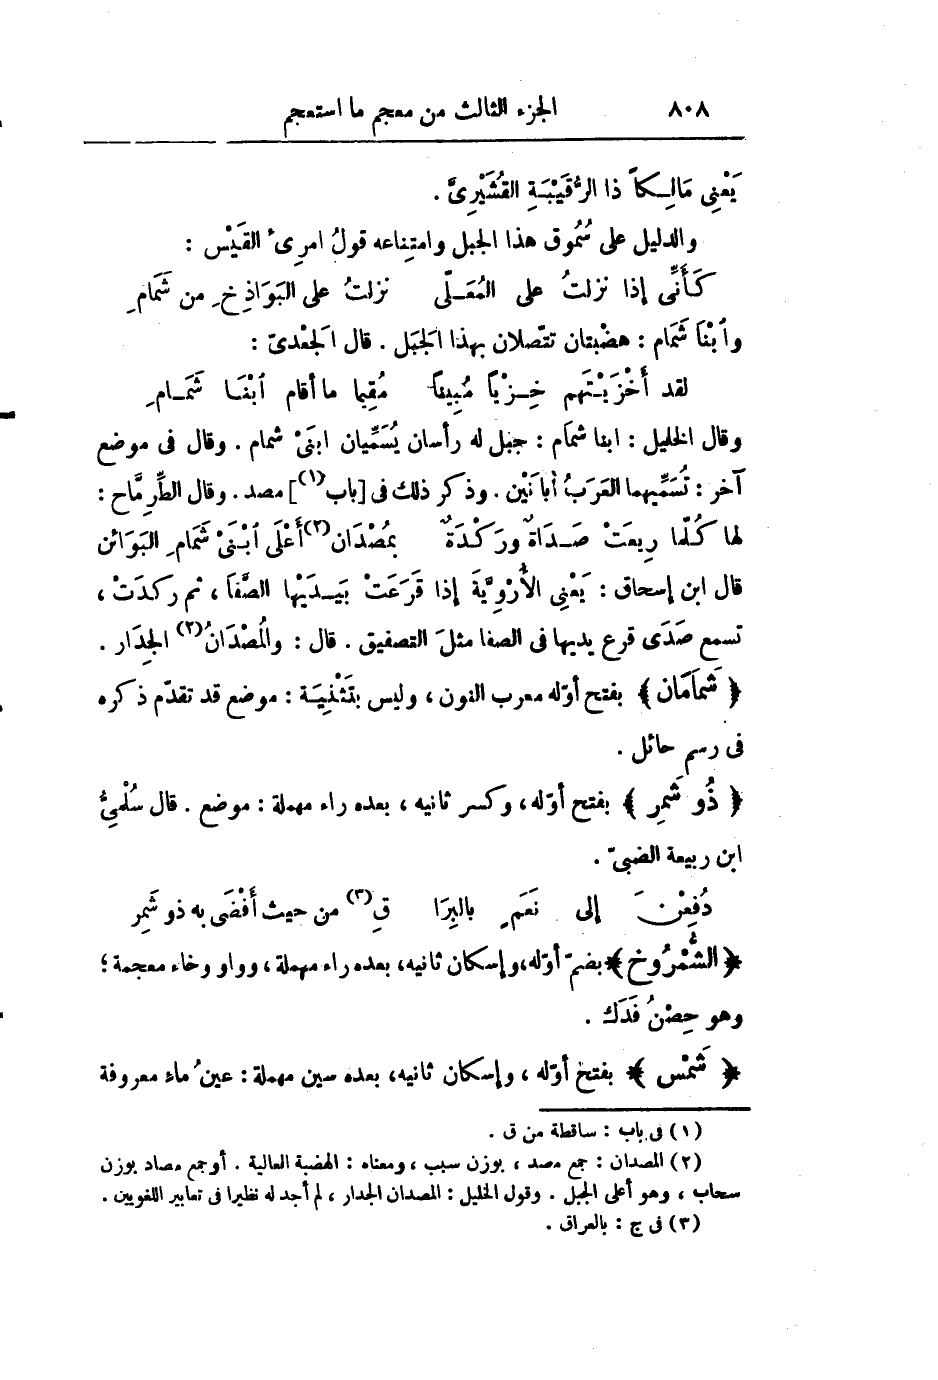 ٨٠٨ الجزء الثالث من معجم ما استعجم
يَعْنِى مَالِـكاً ذا الرُّقَيْبَـةِ القُشَيْرِىَّ .
والدليل على سُمُوق هذا الجبل وامتِناعه قولُ امرِىء القَيْس :
كَـأَنِّى إذا نزلتُ على المُعَـلّى نزلتُ على البَوَاذِخ ِ من شَمَام ِ
وٱبْنَا شَمَام : هضْبتان تتّصلان بهذا الجَبَل . قال الجَعْدىّ :
لقد أَخْزَيْـتَهم خِـزْياً مُبِيناً مُقِيما ما أقام ٱبْنَـا شَمَـام ِ
وقال الخليل : ابنا شمَام : جبل له رأسان يُسَمِّيان ابنَىْ شمام . وقال فى موضع
آخر : تُسَمِّيهما العَرَبُ أبانَيْن . وذكر ذلك فى [باب(١)] مصد . وقال الطِّرِمَّاح :
لها كُـلّما رِيعَتْ صَـدَاةٌ ورَكْـدَةٌ بمُصْدَان(٢) أَعْلَى ٱبْنَىْ شَمَام ِ البَوَائن
قال ابن إسحاق : يَعْنِى الأُرْوِيَّةَ إذا قَرَعَتْ بيَـدَيْها الصَّفَا ، ثم ركدَتْ ،
تسمع صَدَى قرع يديها فى الصفا مثلَ التصفيق . قال : والْمُصْدَانُ(٢) الجِدَار .
﴿ شَمامَان ﴾ بفتح أوّله معرب النون ، وليس بتَثْنِيَـة : موضع قد تقدّم ذكره
فى رسم حائل .
﴿ ذُو شَمِر ﴾ بفتح أوّله، وكسر ثانيه ، بعده راء مهملة : موضع . قال سُلْمِىُّ
ابن ربيعة الضبىّ .
دُفِعْنَ إلى نَعَم ٍ بالبِرَا قِ(٣) من حيث أَفْضَى به ذو شَمِر
﴿ الشُّمْرُوخ ﴾ بضمّ أوّله،وإسكان ثانيه، بعده راء مهملة ، وواو وخاء معجمة ؛
وهو حِصْنُ فَدَك .
﴿ شَمْس ﴾ بفتح أوّله ، وإسكان ثانيه، بعده سين مهملة : عينُ ماء معروفة
(١) فى باب : ساقطة من ق .
(٢) المصدان : جمع مصد ، بوزن سبب ، ومعناه : الهضبة العالية . أو جمع مصاد بوزن
سحاب ، وهو أعلى الجبل . وقول الخليل : المصدان الجدار ، لم أجد له نظيرا فى تعابير اللغويين .
(٣) فى ج : بالعراق .